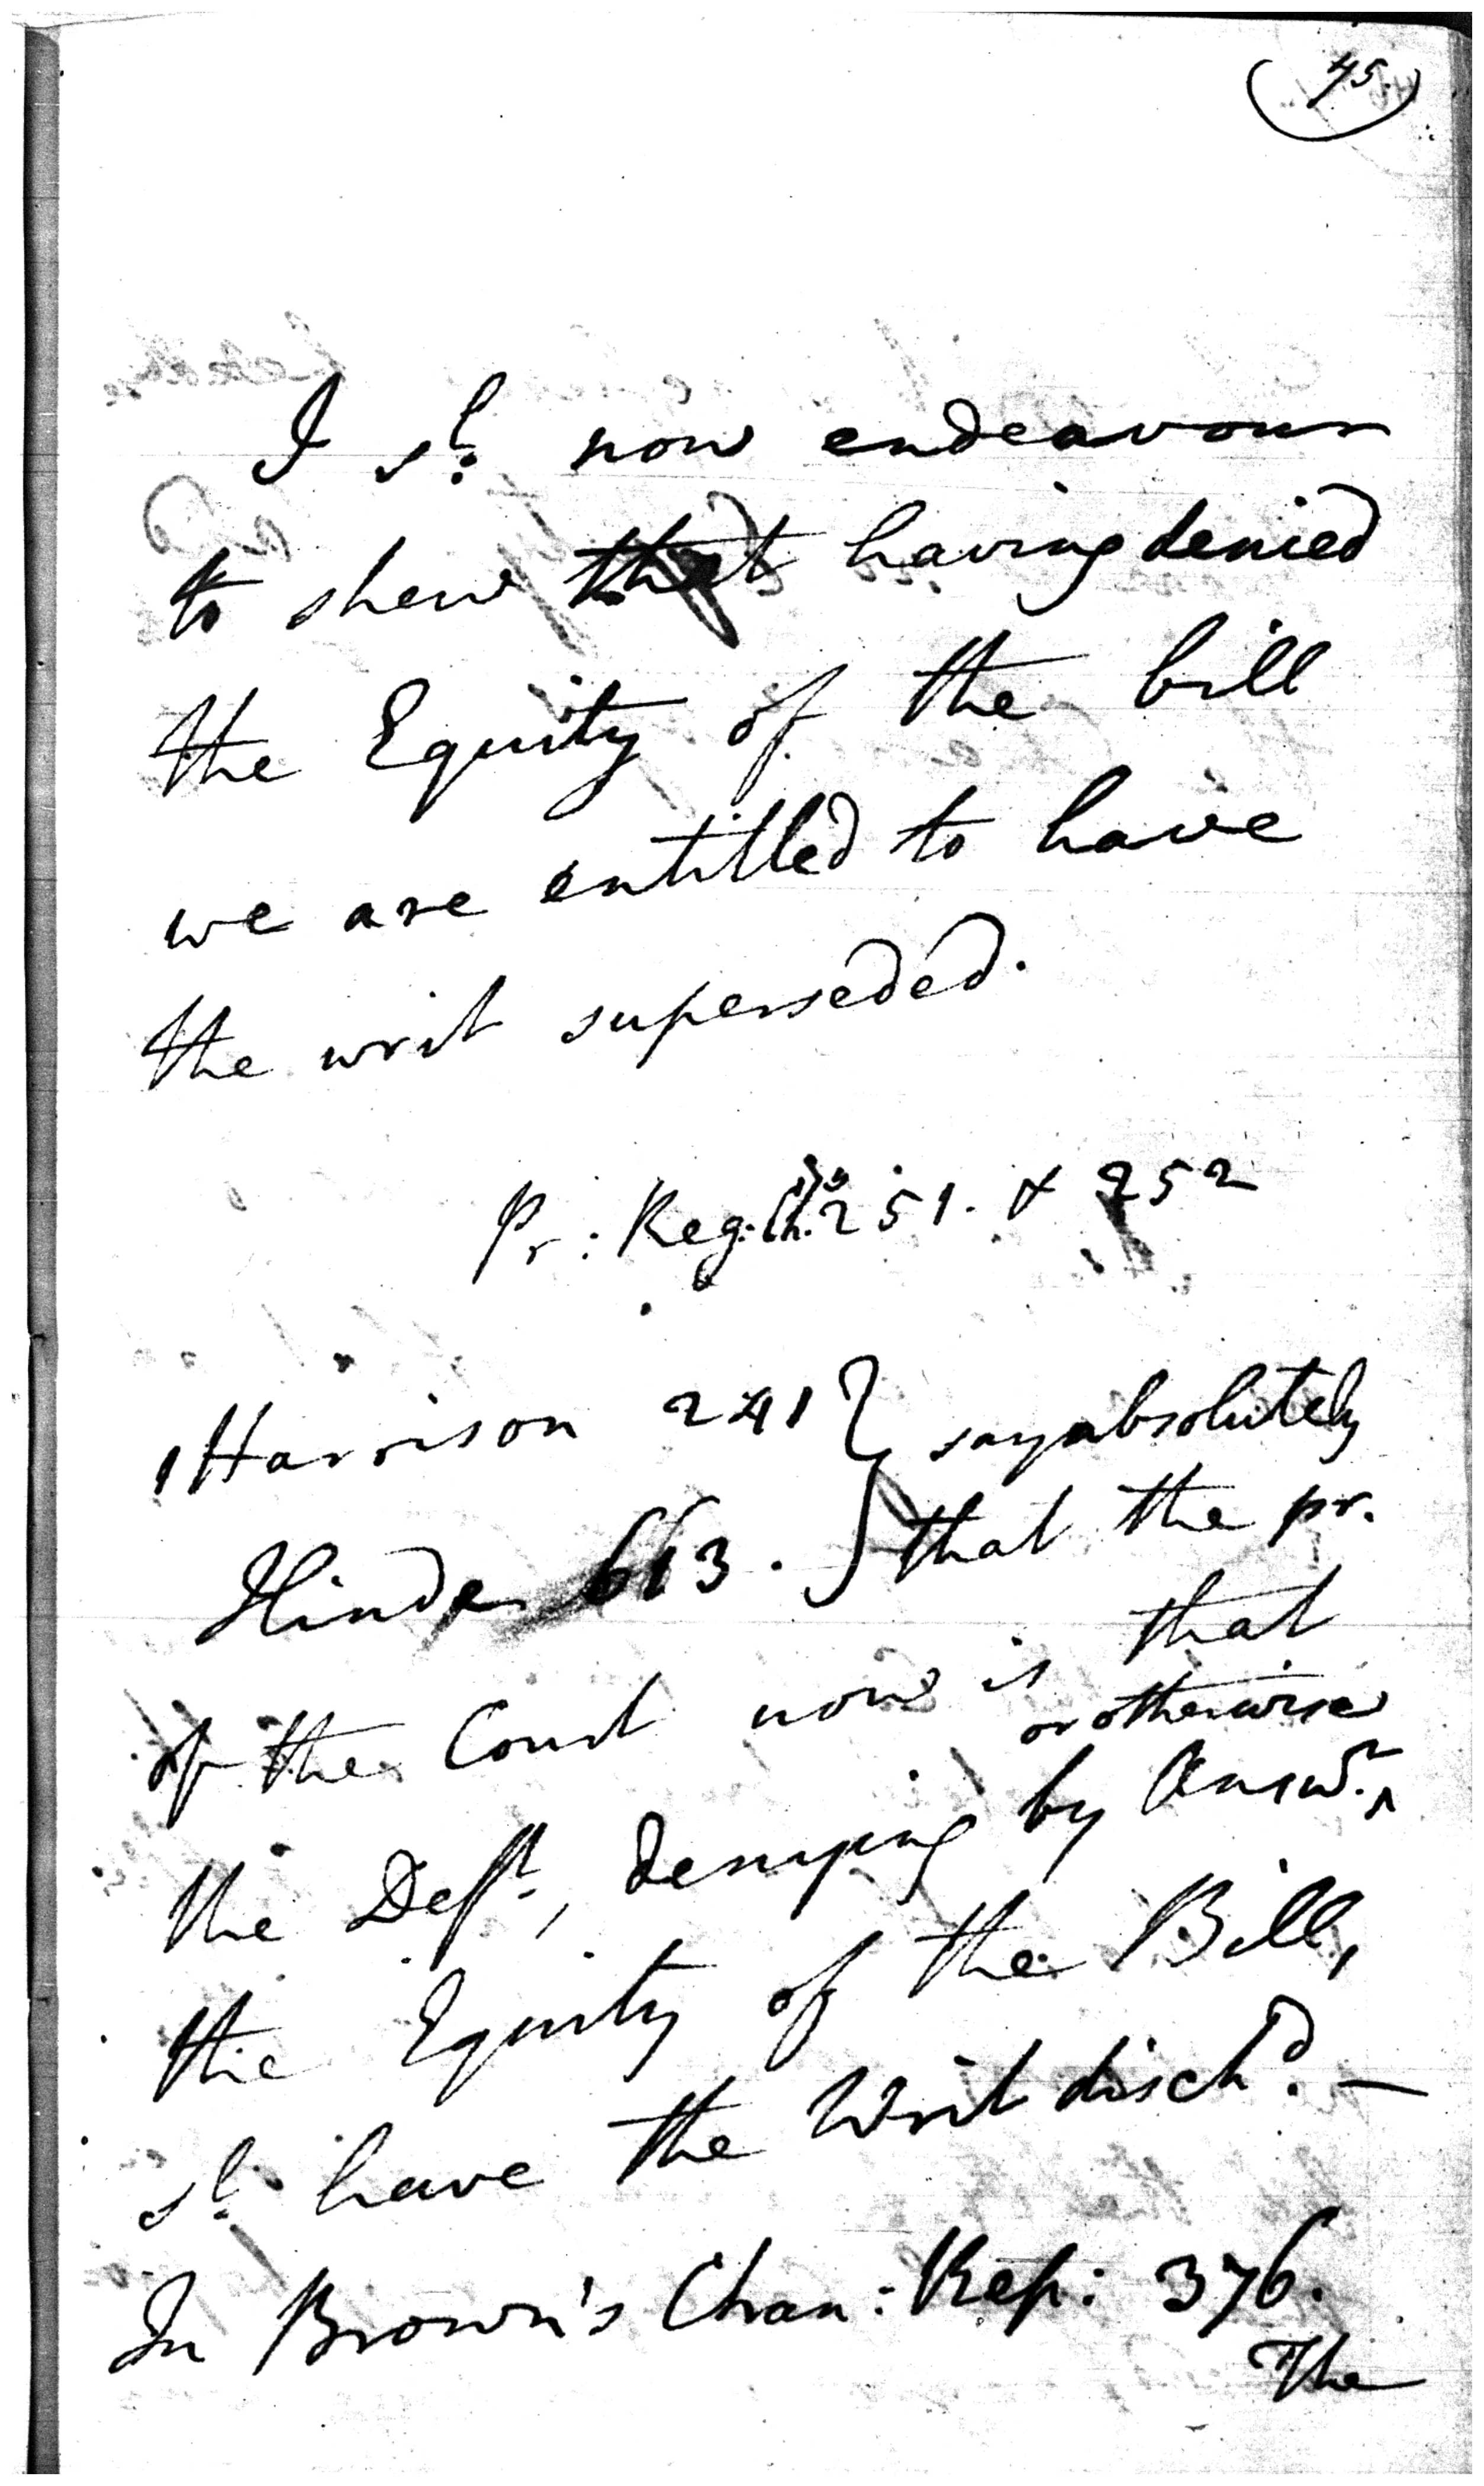 (45.)
I sh: now endeavour
to shew that having denied
the Equity of the bill
we are entitled to have
the writ superseded.
Pr: Reg: Ch. 251. & 252
1 Harrison 241 } say absolutely
Hinde 613. } that the pr.
of the Court now is that
or otherwise
the Deft, denying by Answr. ^
the Equity of the Bill,
sh. have the Writ disch'd. —
In Brown's Chan: Rep: 376.
The